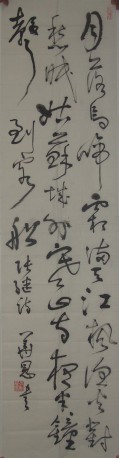 月落烏啼霜滿天江楓漁火對
愁眠姑蘇城外寒山寺夜半鐘
聲到客船 張繼詩